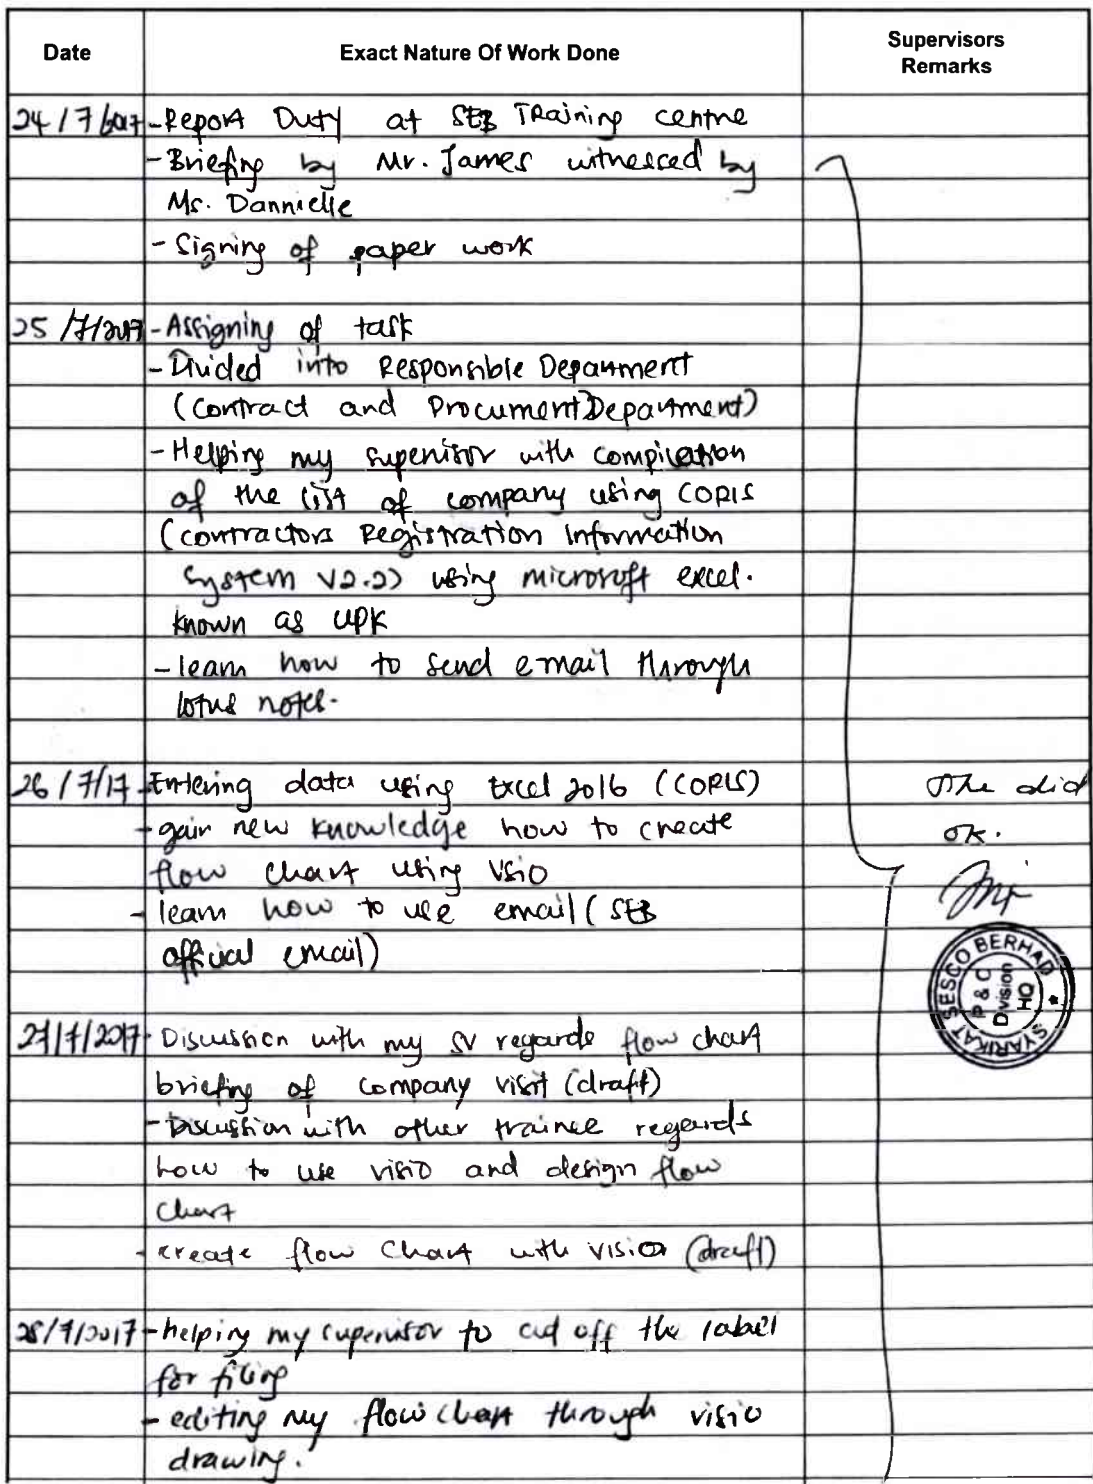 Date Exact Nature Of Work Done Supervisors Remarks
24/7/2017 -Report Duty at SEB Training centre
-Briefing by Mr. James witnessed by
Ms. Dannielle
-Signing of paper work
25/7/2017 -Assigning of task
-Divided into Responsible Department
(Contract and Procument Department)
-Helping my supervisor with compilation
of the list of company using CORIS
(contractors Registration Information
System V2.2) using microsoft excel.
known as UPK
-learn how to send email through
lotus notes.
26/7/17 -Entering data using Excel 2016 (CORIS) She did
-gain new knowledge how to create ok.
flow chart using Visio
- learn how to use email (SEB
official email)
SYARIKAT SESCO BERHAD
P & C
Division
HQ
27/7/2017 -Discussion with my SV regards flow chart
briefing of company visit (draft)
-Discussion with other trainee regards
how to use visio and design flow
chart
-create flow chart with vision (draft)
28/7/2017 -helping my supervisor to cut off the label
for filing
- editing my flow chart through visio
drawing.